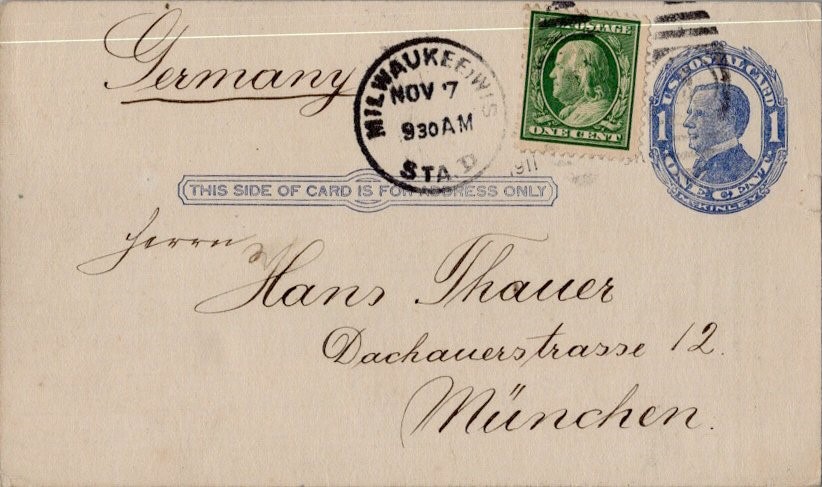 Germany
MILWAUKEE, WIS
NOV 7
930 AM
STA. D
1911
POSTAGE
ONE CENT
U.S. POSTAL CARD
1 1
ONE CENT
McKINLEY
THIS SIDE OF CARD IS FOR ADDRESS ONLY
Herrn
Hans Thauer
Dachauerstrasse 12.
München.